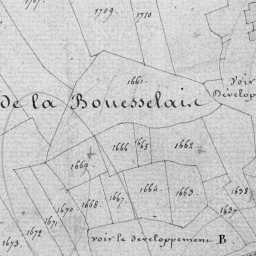 1707.
1709.
1710
1661
Voir
Dévelop
de la Bouesselaie
1666
1665
1662
1669
1664
1663.
1638
1667.
1668
1670
1671
1672
1673.
1637
voir le developpement B